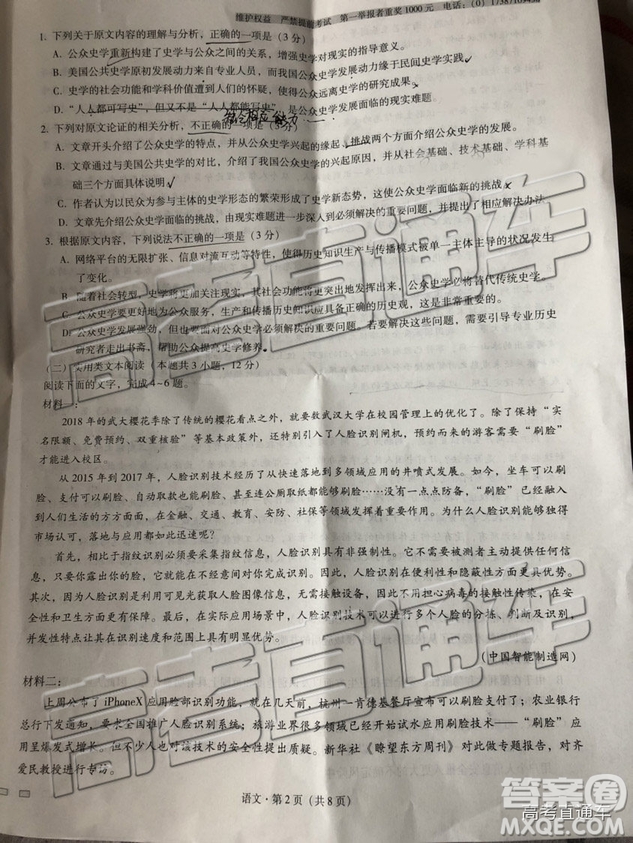 维护权益 严禁提前考试 第一举报者重奖1000元 电话：(0)
1. 下列关于原文内容的理解与分析，正确的一项是（3分）
A. 公众史学重新构建了史学与公众之间的关系，增强了史学对现实的指导意义。
B. 美国公共史学原初发展动力来自专业人员，而我国公众史学发展动力缘于民间史学实践。
C. 史学的社会功能和学科价值遭到人们的怀疑，使得公众远离史学的研究成果。
D. “人人都可写史”，但又不是“人人都能写史”，是公众史学发展面临的现实难题
2. 下列对原文论证的相关分析，不正确的一项是（3分）
A. 文章开篇介绍了公众史学的特点，并从公众史学兴起的缘起、挑战两个方面介绍公众史学的发展。
B. 文章通过与美国公共史学的对比，介绍了我国公众史学的兴起，并从社会基础、技术基础、学科基
础三个方面具体说明
C. 作者认为以民众为参与主体的史学形态的繁荣形成了史学新态势，这使公众史学面临新的挑战
D. 文章先介绍公众史学面临的挑战，由现实难题进一步深入到必须解决的重要问题，并提出了相应解决办法
3. 根据原文内容，下列说法不正确的一项是（3分）
A. 网络平台的无限扩张、信息对流互动等特性，使得历史知识生产与传播模式被单一主体主导的状况发生
了变化。
B. 随着社会转型，史学更加关注现实，其社会功能得到更大的发挥，公众史学必将替代传统史学。
C. 公众史学要更好地为公众服务，生产和传播历史知识应具备正确的历史观，这是一个重要问题。
D. 公众史学发展强劲，而对公众史学必须解决的重要问题，若要解决这些问题，需要引导专业历史
研究者走出书斋，帮助公众提高史学修养。
（二）实用类文本阅读（本题共3小题，12分）
阅读下面的文字，完成4~6题。
材料一：
2018年的武大樱花季除了传统的樱花看点之外，就要数武汉大学在校园管理上的优化了。除了保持“实
名限额、免费预约、双重核验”等基本政策外，还特别引入了人脸识别闸机，预约而来的游客需要“刷脸”
才能进入校区。
从2015年到2017年，人脸识别技术经历了从快速落地到多领域应用的井喷式发展。如今，坐车可以刷
脸、支付可以刷脸、自动取款也能刷脸、甚至连公厕取纸都能够刷脸……没有一点点防备，“刷脸”已经融入
到人们生活的方方面面，在金融、交通、教育、安防、社保等领域发挥着重要作用。为什么人脸识别能够独得
市场认可，落地与应用都如此迅速呢？
首先，相比于指纹识别必须要采集指纹信息，人脸识别具有非强制性。它不需要被测者主动提供信
息，只要你露出你的脸，它就能在无意环境中对你完成识别。因此，人脸识别在便利性和隐蔽性方面更具优势。
其次，因为人脸识别利用可见光获取人脸图像信息，无需接触设备，因此不用担心病毒的接触性传染，在安
全性和卫生方面更有保障。最后，在实际应用场景中，人脸识别技术可以进行多个人脸的分拣、判断及识别，
并发性特点让其在识别速度和范围上具有明显优势。
（中国智能制造网）
材料二：
上周公布了iPhoneX应用脸部识别功能，就在几天前，杭州一肯德基餐厅宣布可以刷脸支付了；农业银行
总行下发通知，要求全国推广人脸识别系统；旅游业界很多领域已经开始试水应用刷脸技术——“刷脸”应
用呈爆发式增长。但不少人对该技术的安全性提出质疑。新华社《瞭望东方周刊》对此做专题报道，对齐
爱民教授进行专访。
语文·第2页（共8页）
高考直通车
高考直通车
答案圈
高考直通车
MXQE.COM